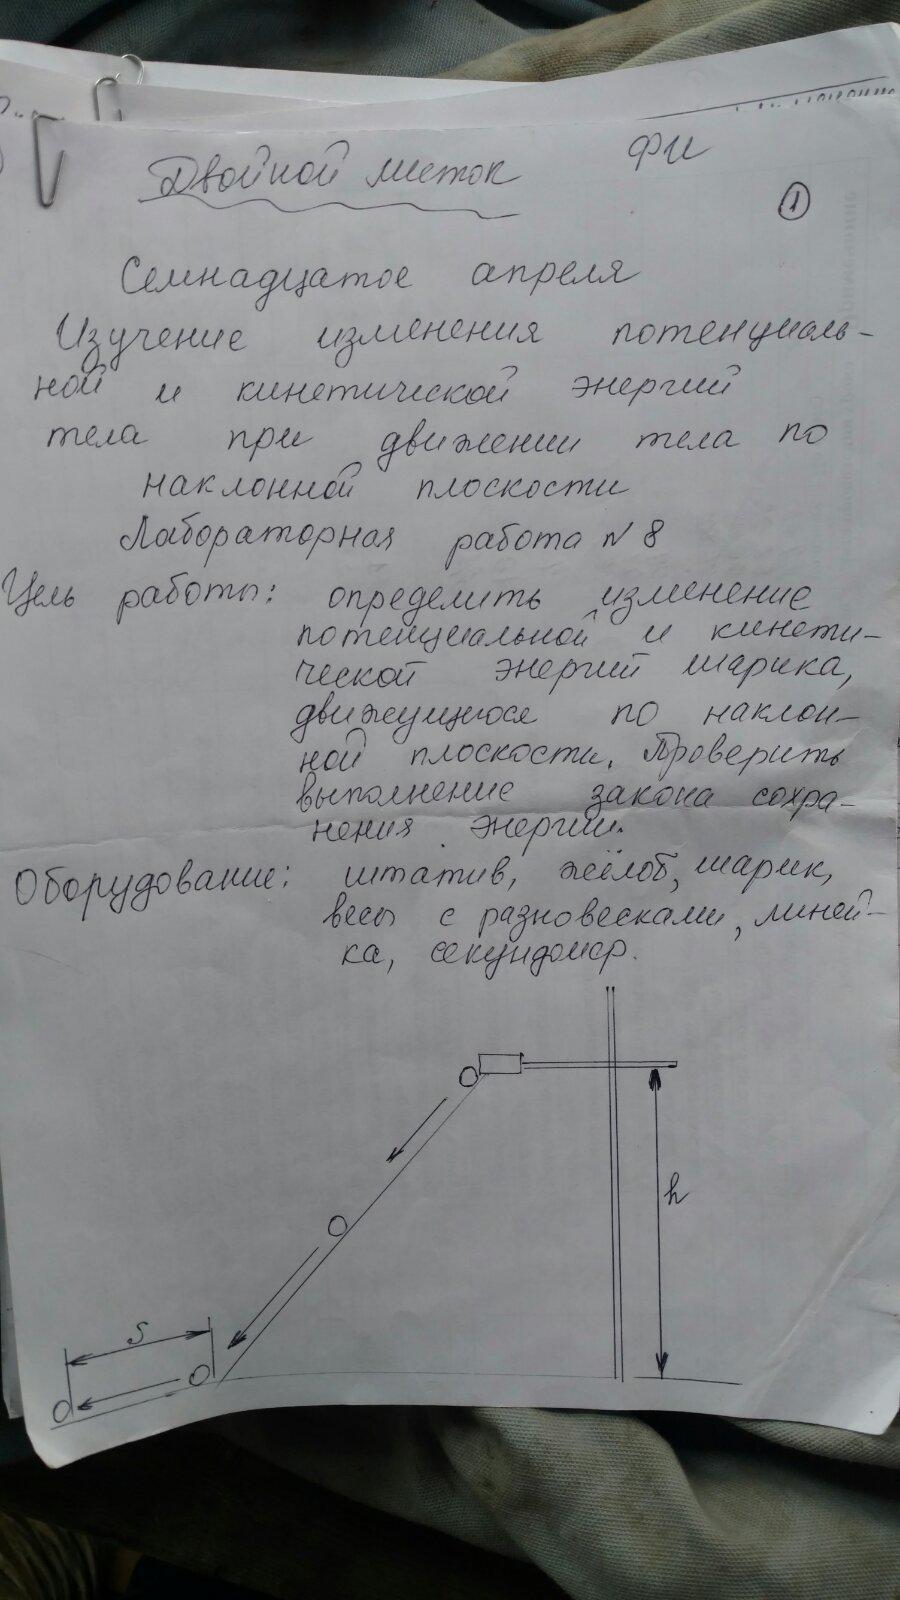 Двойной листок ФИ
1
Семнадцатое апреля
Изучение изменения потенциаль-
ной и кинетической энергий
тела при движении тела по
наклонной плоскости
Лабораторная работа N 8
Цель работы: определить изменение
потенциальной и кинети-
ческой энергий шарика,
движущиюся по наклон-
ной плоскости. Проверить
выполнение закона сохра-
нения энергии.
Оборудование: штатив, жёлоб, шарик,
весы с разновесками, линей-
ка, секундомер.
h
S